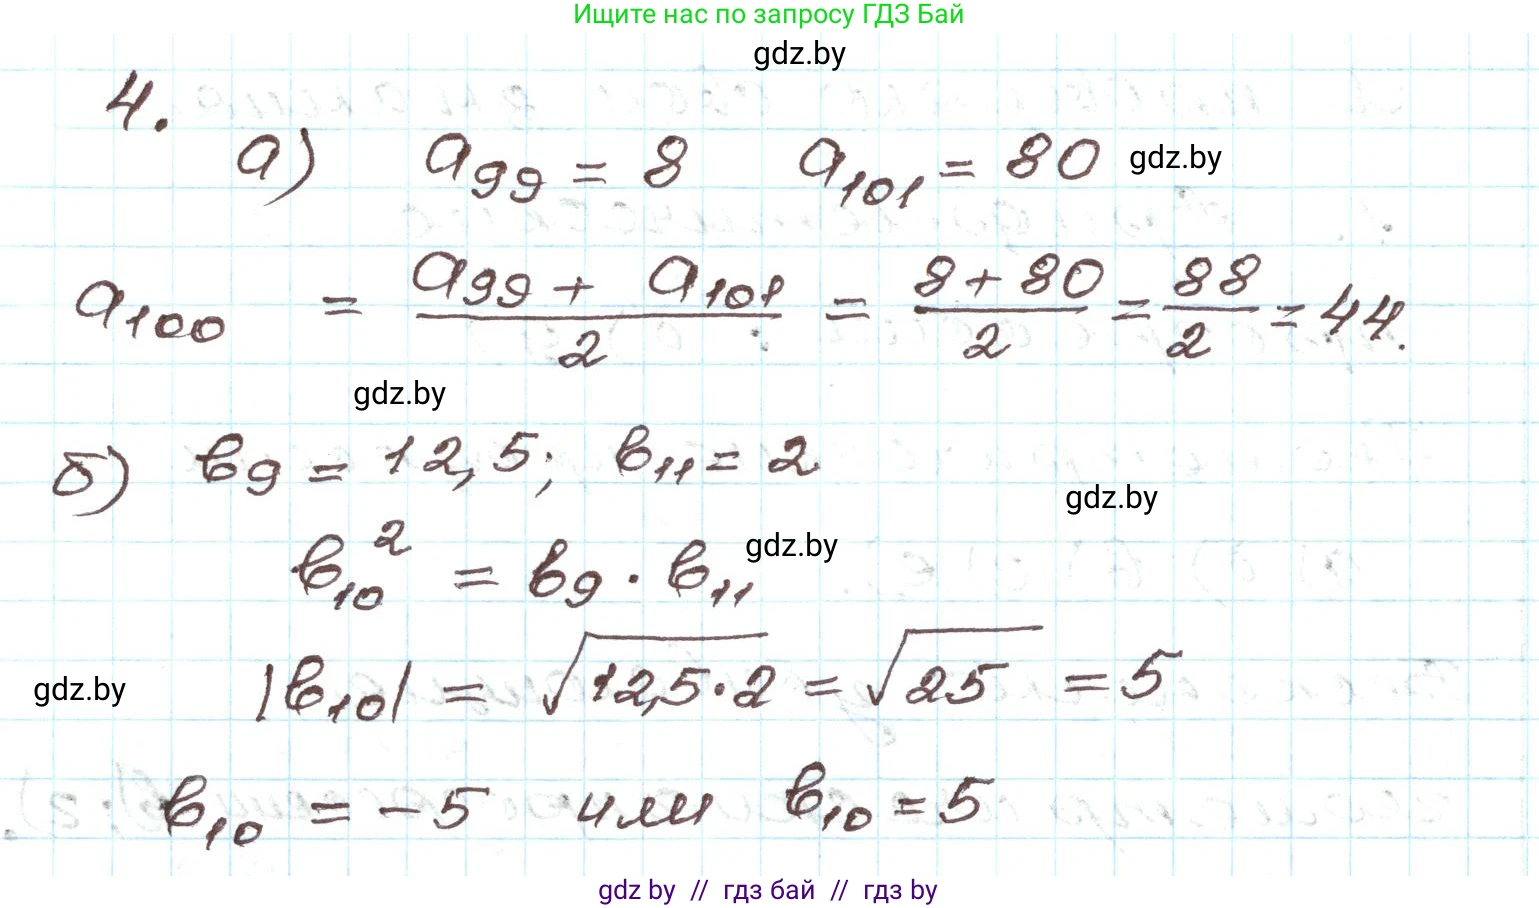 Ищите нас по запросу ГДЗ Бай
gdz.by
4.
а) a₉₉ = 8 a₁₀₁ = 80 gdz.by
a₁₀₀ = (a₉₉ + a₁₀₁)/2 = (8 + 80)/2 = 88/2 = 44.
gdz.by
б) в₉ = 12,5; в₁₁ = 2
gdz.by
в₁₀² = в₉ · в₁₁ gdz.by
gdz.by |в₁₀| = √(12,5·2) = √25 = 5
в₁₀ = -5 или в₁₀ = 5
gdz by // гдз бай // гдз by